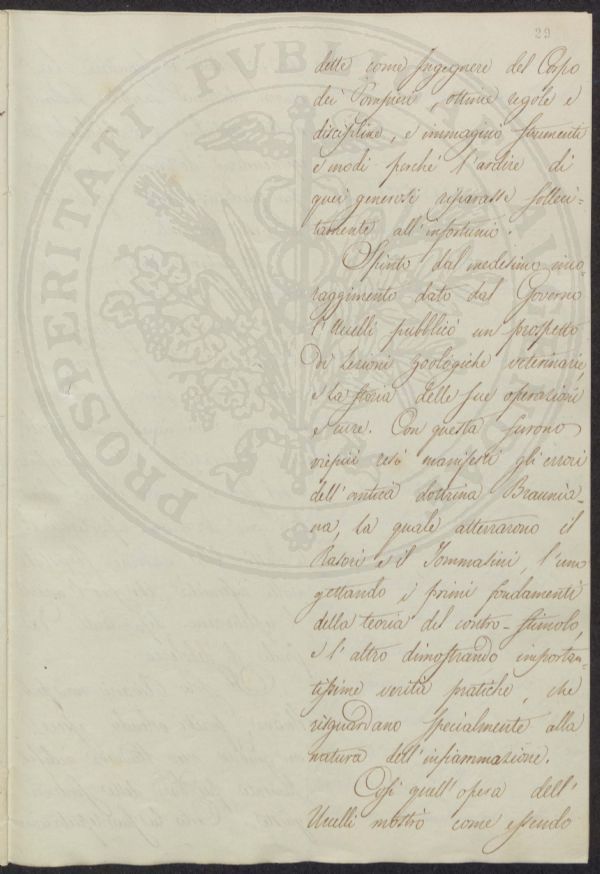 29
dette come Ingegnere del Corpo
dei Pompieri, ottime regole e
discipline, e immaginò strumenti
e modi perché l'ardire di
quei generosi riparasse solleci=
tamente all'infortunio.
Spinto dal medesimo inco-
raggimento dato dal Governo
l'Uccelli pubblicò un prospetto
di lezioni zoologiche veterinarie,
e la storia delle sue operazioni
e cure. Con questa furono
viepiù resi manifesti gli errori
dell'antica dottrina Braunia-
na, la quale atterrarono il
Rasori e il Tommasini, l'uno
gettando i primi fondamenti
della teoria del contro-stimolo,
e l'altro dimostrando importan-
tissime verità pratiche, che
risguardano specialmente alla
natura dell'infiammazione.
Così quell'opera dell'
Uccelli mostrò come essendo
PROSPERITATI PVBLICAE